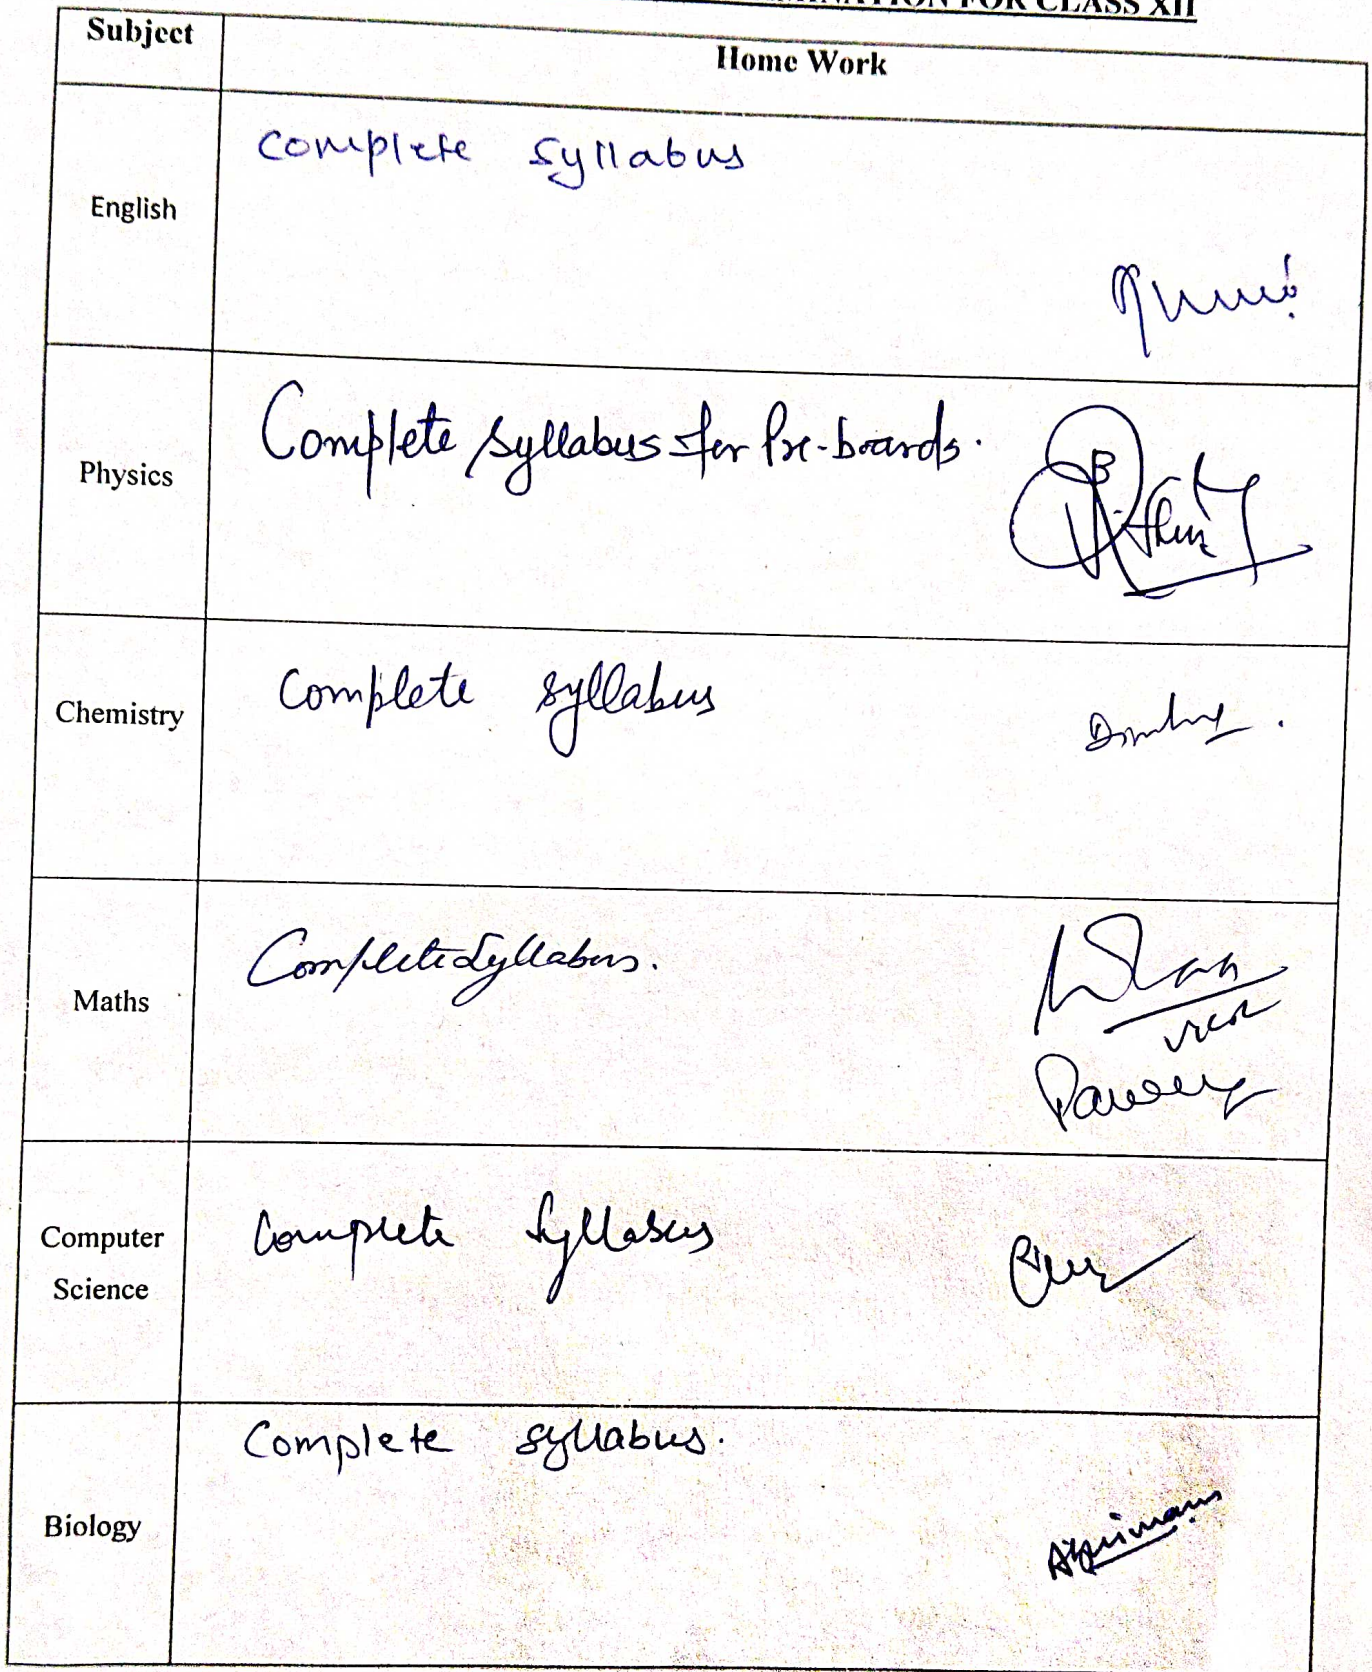 FOR CLASS XII
Subject
Home Work
English
Complete Syllabus
Physics
Complete Syllabus for Pre-boards.
Chemistry
Complete syllabus
Maths
Complete Syllabus.
Computer
Science
Complete Syllabus
Biology
Complete syllabus.